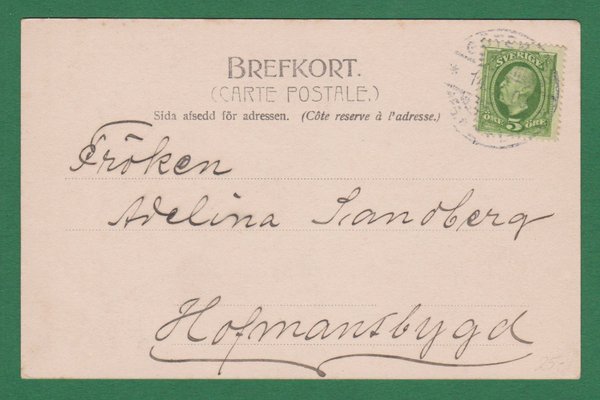 BREFKORT.
(CARTE POSTALE.)
Sida afsedd för adressen. (Côte reserve à l'adresse.)
SVERIGE
ÖRE 5 ÖRE
Fröken
Adelina Sandberg
Hofmansbygd